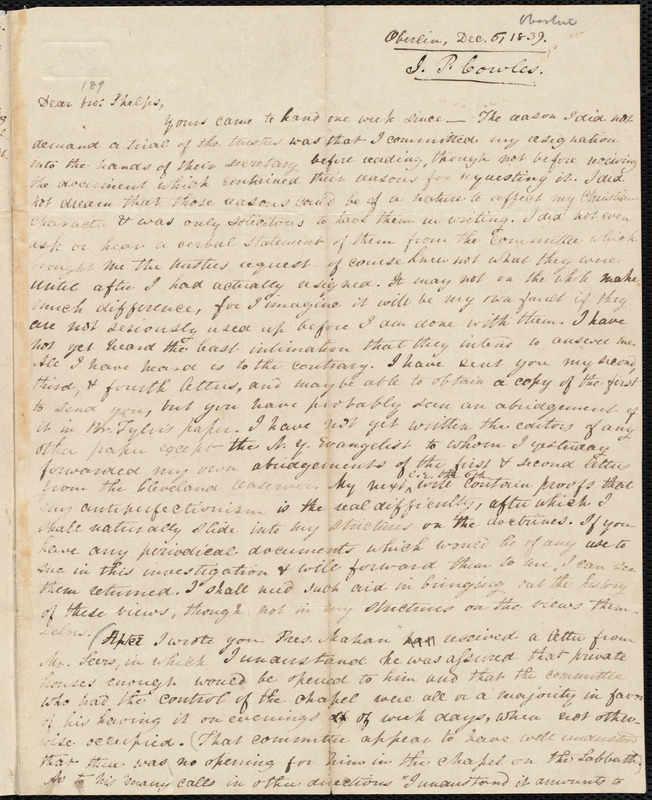 Oberlin
Oberlin, Dec. 6, 1839.
J. P. Cowles.
189
Dear bro: Phelps,
Yours came to hand one week since — The reason I did not
demand a trial of the trustees was that I committed my resignation
into the hands of their secretary before reading, though not before receiving
the document which contained their reasons for requesting it. I did
not dream that those reasons could be of a nature to affect my Christian
character & was only solicitous to have them in writing. I did not even
ask or hear a verbal statement of them from the committee which
brought me the trustees request – of course knew not what they were
until after I had actually resigned. It may not on the whole make
much difference, for I imagine it will be my own fault if they
are not seriously used up before I am done with them. I have
not yet heard the least intimation that they intend to answer me.
All I have heard is to the contrary. I have sent you my second,
third, & fourth letters, and may be able to obtain a copy of the first
to send you, but you have probably seen an abridgement of
it in Br. Tyler's paper. I have not yet written the editors of any
other paper except the N. Y. Evangelist to whom I yesterday
forwarded my own abridgements of the first & second letters
from the Cleveland Observer. My next, will contain proofs that
my antiperfectionism is the real difficulty, after which I
shall naturally slide into my strictures on the doctrines. If you
have any periodical documents which would be of any use to
me in this investigation & will forward them to me, I can see
them returned. I shall need such aid in bringing out the history
of these views, though not in my strictures on the views them-
selves. (After I wrote you Pres. Mahan received a letter from
Mr. in which I understand he was assured that private
houses enough would be opened to him and that the committee
who had the control of the chapel were all or a majority in favor
of his having it on evenings of week days, when not other-
wise occupied. (That committee appear to have well understood
that there was no opening for him in the chapel on the Sabbath)
As to his many calls in other directions "I understand it amounts to